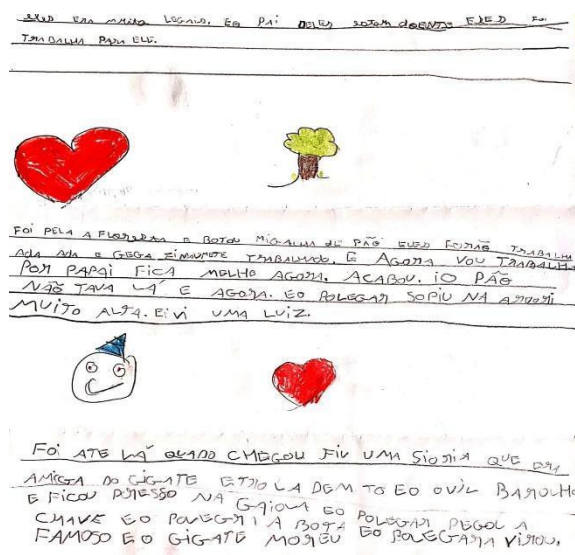 ELES ERA MUITO LEGAIS. EO PAI DELES ESTAVA DOENTE ELES FOI
TRABALHA PARA ELE.
FOI PELA A FLORESTA E BOTOU MIGALHA DE PÃO ELES FORÃO TRABALHA
ADA ADA E TRABALHADO. E AGORA VOU TRABALHA
POR PAPAI FICA MELHO AGORA. ACABOU. IO PÃO
NÃO TAVA LÁ E AGORA. EO POLEGAR SOPIU NA ARVORI
MUITO ALTA. EI VI UMA LUIZ.
FOI ATE LÁ QUADO CHEGOU FIU UMA SIORIA QUE ERA
AMIGA DO GIGATE LA DEMTO EO OVIL BARULHO
E FICOU PRESSO NA GAIOLA EO POLEGAR PEGOL A
CHAVE EO POLEGRI A BOTA
FAMOSO EO GIGATE MOREU EO POLEGARA VIROU.